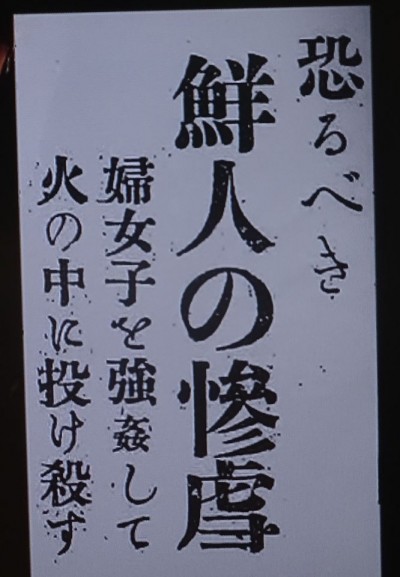 恐るべき
鮮人の惨虐
婦女子を強姦して
火の中に投け殺す